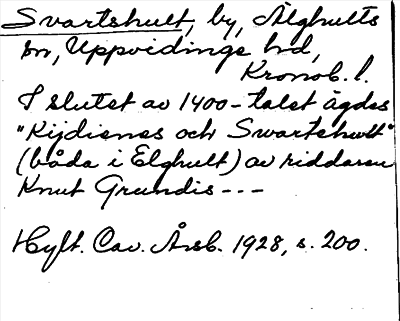 Svartshult, by, Älghults
sn, Uppvidinge hd,
Kronob. l.
I slutet av 1400-talet ägdes
"Kijdisnes och Swartshult"
(båda i Elghult) av riddaren
Knut Grundis---
Hylt. Cav. Årsb. 1928, s. 200.